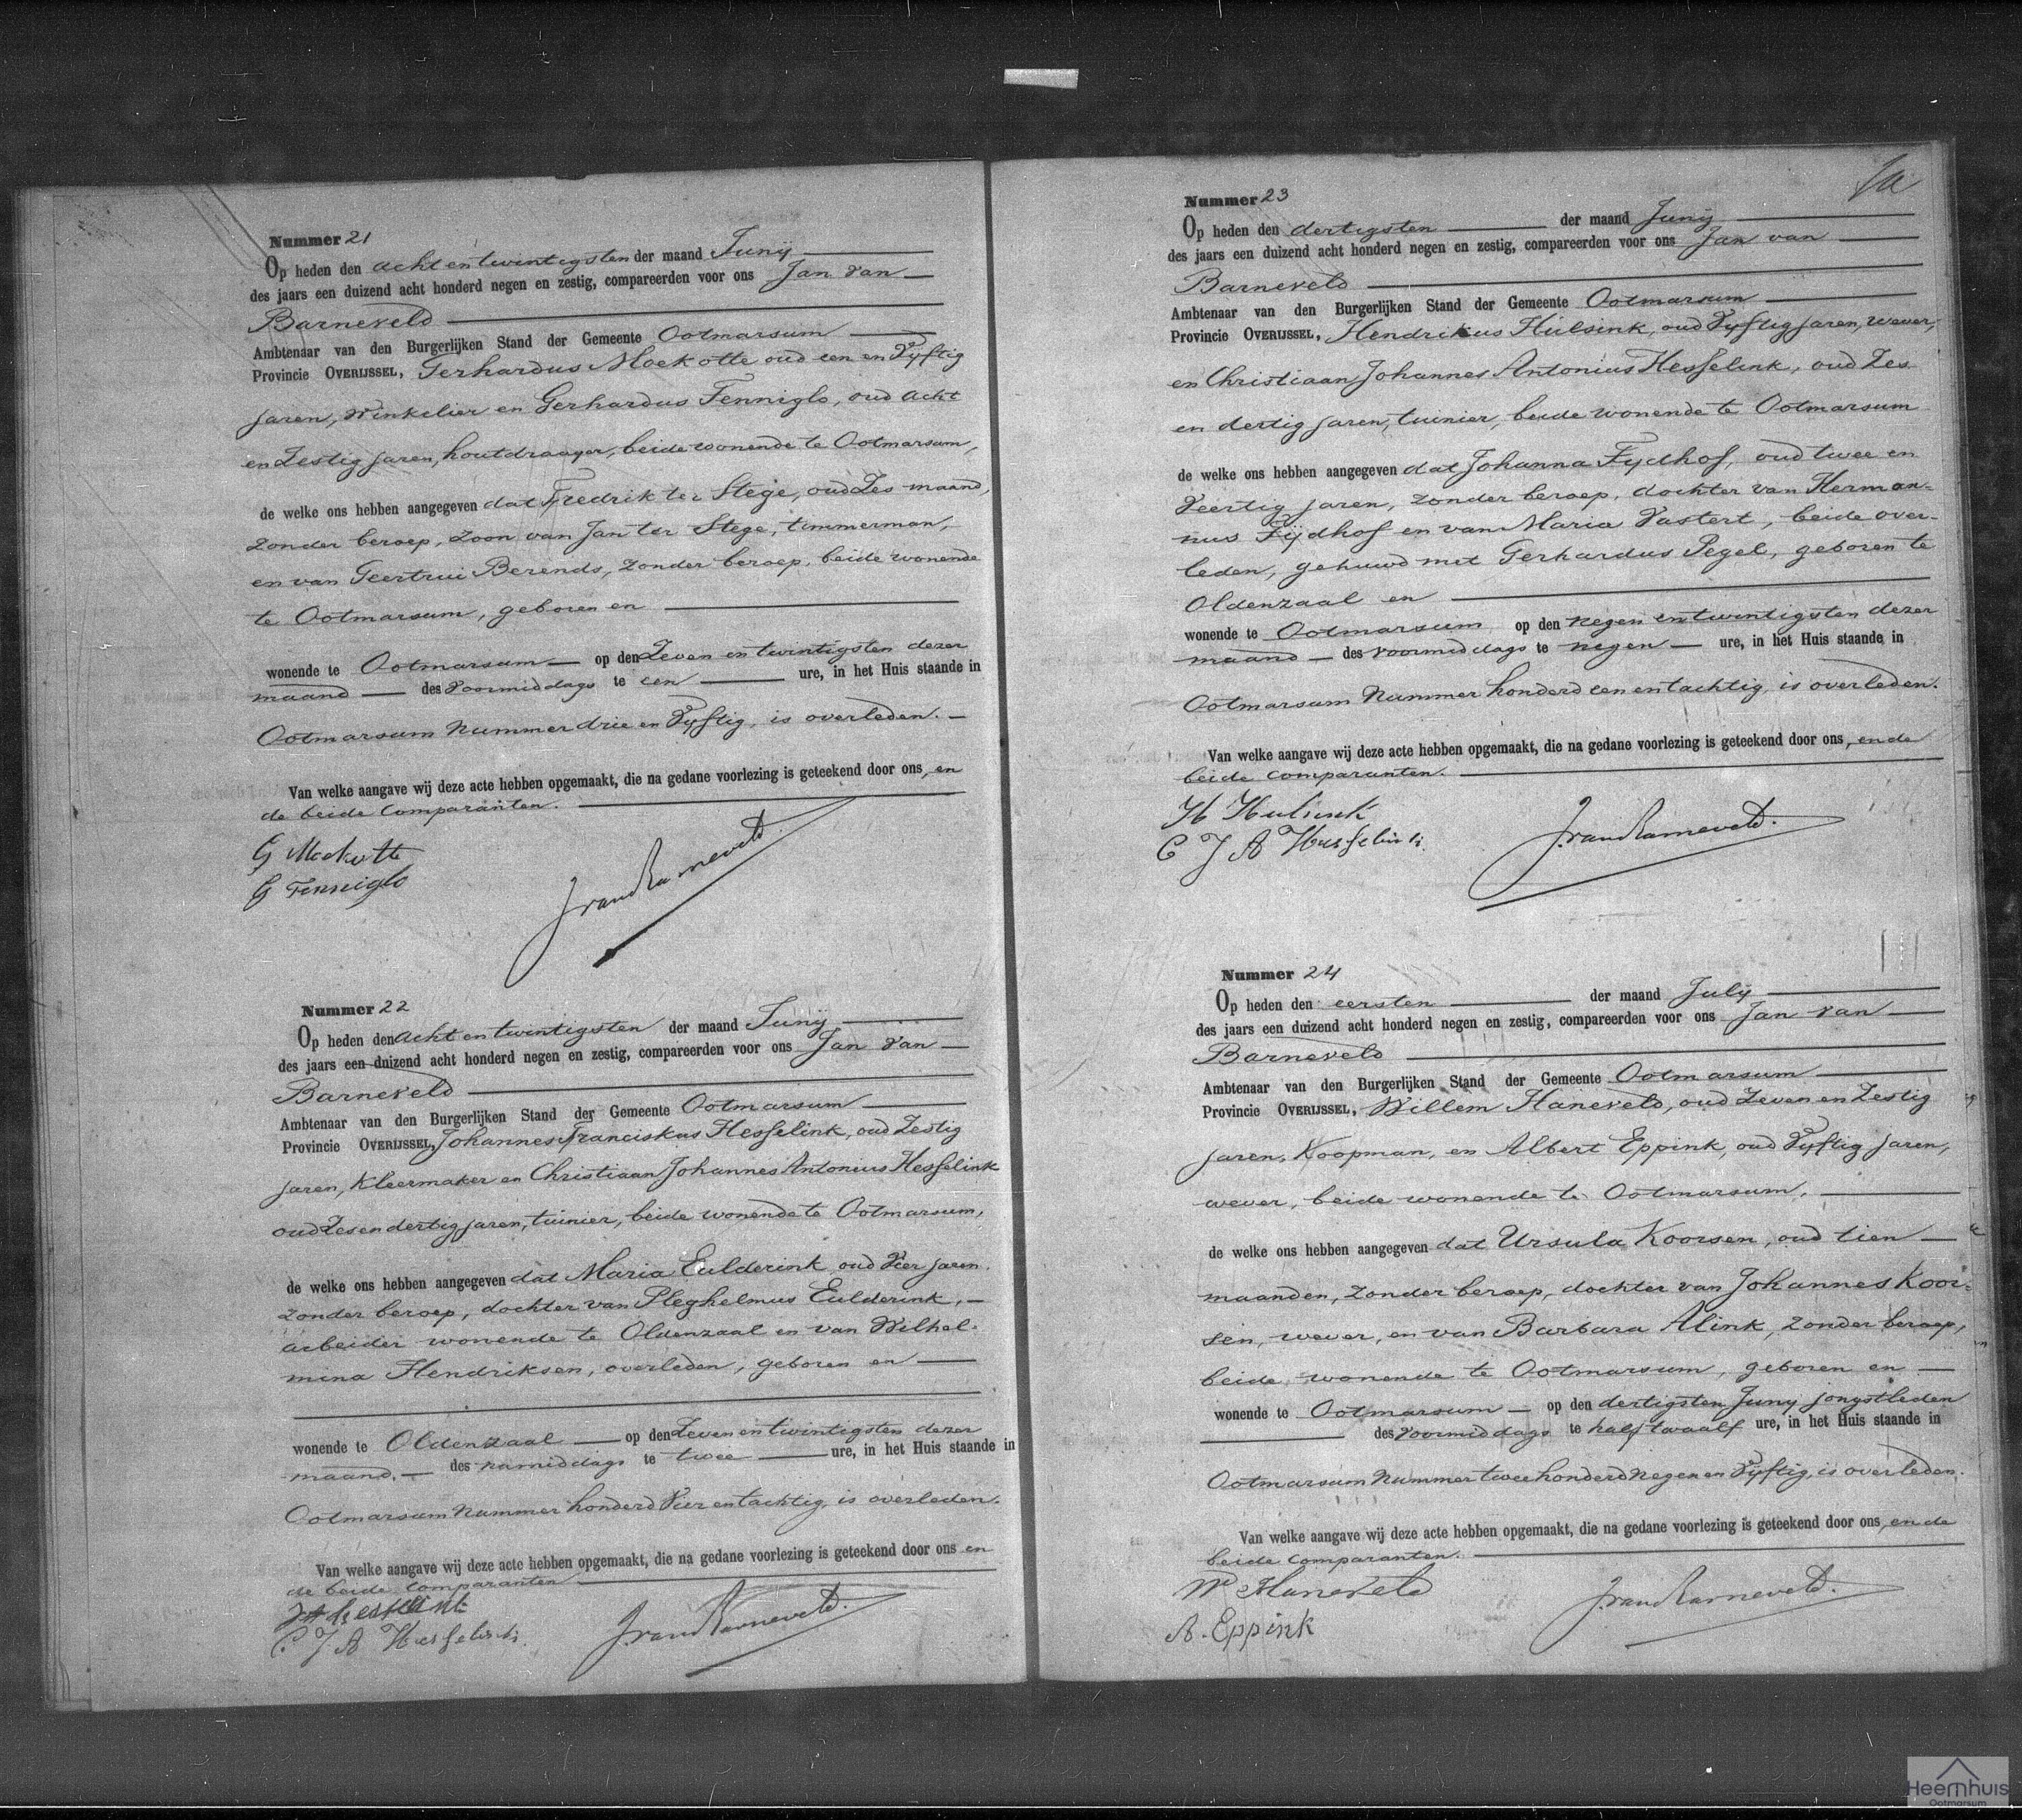 Nummer 21
Op heden den acht en twintigsten der maand Junij
des jaars een duizend acht honderd negen en zestig, compareerden voor ons Jan van
Barneveld
Ambtenaar van den Burgerlijken Stand der Gemeente Ootmarsum
Provincie OVERIJSSEL, Gerhardus Moekotte oud een en Vyftig
jaren, Winkelier en Gerhardus Fenniglo, oud acht
en Zestig jaren, houtdraager, beide wonende te Ootmarsum,
de welke ons hebben aangegeven dat Fredrik ter Stege, oud Zes maand,
zonder beroep, zoon van Jan ter Stege, timmerman,
en van Geertrui Berends, zonder beroep, beide wonende
te Ootmarsum, geboren en
wonende te Ootmarsum op den Zeven en twintigsten dezer
maand des Voormiddags te een ure, in het Huis staande in
Ootmarsum Nummer drie en Vyftig, is overleden.
Van welke aangave wij deze acte hebben opgemaakt, die na gedane voorlezing is geteekend door ons, en
de beide comparanten.
G Moekotte
G Fenniglo
J van Barneveld
Nummer 22
Op heden den acht en twintigsten der maand Junij
des jaars een duizend acht honderd negen en zestig, compareerden voor ons Jan van
Barneveld
Ambtenaar van den Burgerlijken Stand der Gemeente Ootmarsum
Provincie OVERIJSSEL, Johannes Franciskus Hesselink, oud Zestig
jaren, Kleermaker en Christiaan Johannes Antonius Hesselink
oud Zes en dertig jaren, tuinier, beide wonende te Ootmarsum,
de welke ons hebben aangegeven dat Maria Eulderink, oud Vier jaren.
zonder beroep, dochter van Pleghelmus Eulderink,
arbeider wonende te Oldenzaal en van Wilhel-
mina Hendriksen, overleden, geboren en
wonende te Oldenzaal op den Zeven en twintigsten dezer
maand. des namiddags te twee ure, in het Huis staande in
Ootmarsum Nummer honderd Vier en tachtig, is overleden.
Van welke aangave wij deze acte hebben opgemaakt, die na gedane voorlezing is geteekend door ons en
de beide comparanten
C J A Hesselink.
J van Barneveld.
1a
Nummer 23
Op heden den dertigsten der maand Junij
des jaars een duizend acht honderd negen en zestig, compareerden voor ons Jan van
Barneveld
Ambtenaar van den Burgerlijken Stand der Gemeente Ootmarsum
Provincie OVERIJSSEL, Hendrikus Hulsink, oud Vyftig jaren, wever,
en Christiaan Johannes Antonius Hesselink, oud Zes
en dertig jaren, tuinier, beide wonende te Ootmarsum
de welke ons hebben aangegeven dat Johanna Fydhof, oud twee en
Veertig jaren, zonder beroep, dochter van Herman-
nus Fijdhof en van Maria Vastert, beide over-
leden, gehuwd met Gerhardus Pegel, geboren te
Oldenzaal en
wonende te Ootmarsum op den negen en twintigsten dezer
maand des voormiddags te negen ure, in het Huis staande in
Ootmarsum Nummer honderd een en tachtig, is overleden.
Van welke aangave wij deze acte hebben opgemaakt, die na gedane voorlezing is geteekend door ons, en de
beide comparanten.
H Hulsink
C J A Hesselink.
J van Barneveld.
Nummer 24
Op heden den eersten der maand July
des jaars een duizend acht honderd negen en zestig, compareerden voor ons Jan van
Barneveld
Ambtenaar van den Burgerlijken Stand der Gemeente Ootmarsum
Provincie OVERIJSSEL, Willem Haneveld, oud Zeven en Zestig
jaren, Koopman, en Albert Eppink, oud Vyftig jaren,
wever, beide wonende te Ootmarsum.
de welke ons hebben aangegeven dat Ursula Koorsen, oud tien
maanden, zonder beroep, dochter van Johannes Koor-
sen, wever, en van Barbara Alink, zonder beroep,
beide wonende te Ootmarsum, geboren en
wonende te Ootmarsum op den dertigsten Juny jongstleden
des voormiddags te half twaalf ure, in het Huis staande in
Ootmarsum Nummer twee honderd Negen en Vyftig, is overleden.
Van welke aangave wij deze acte hebben opgemaakt, die na gedane voorlezing is geteekend door ons, en de
beide comparanten.
W Haneveld
A. Eppink
J van Barneveld.
Heemhuis
Ootmarsum